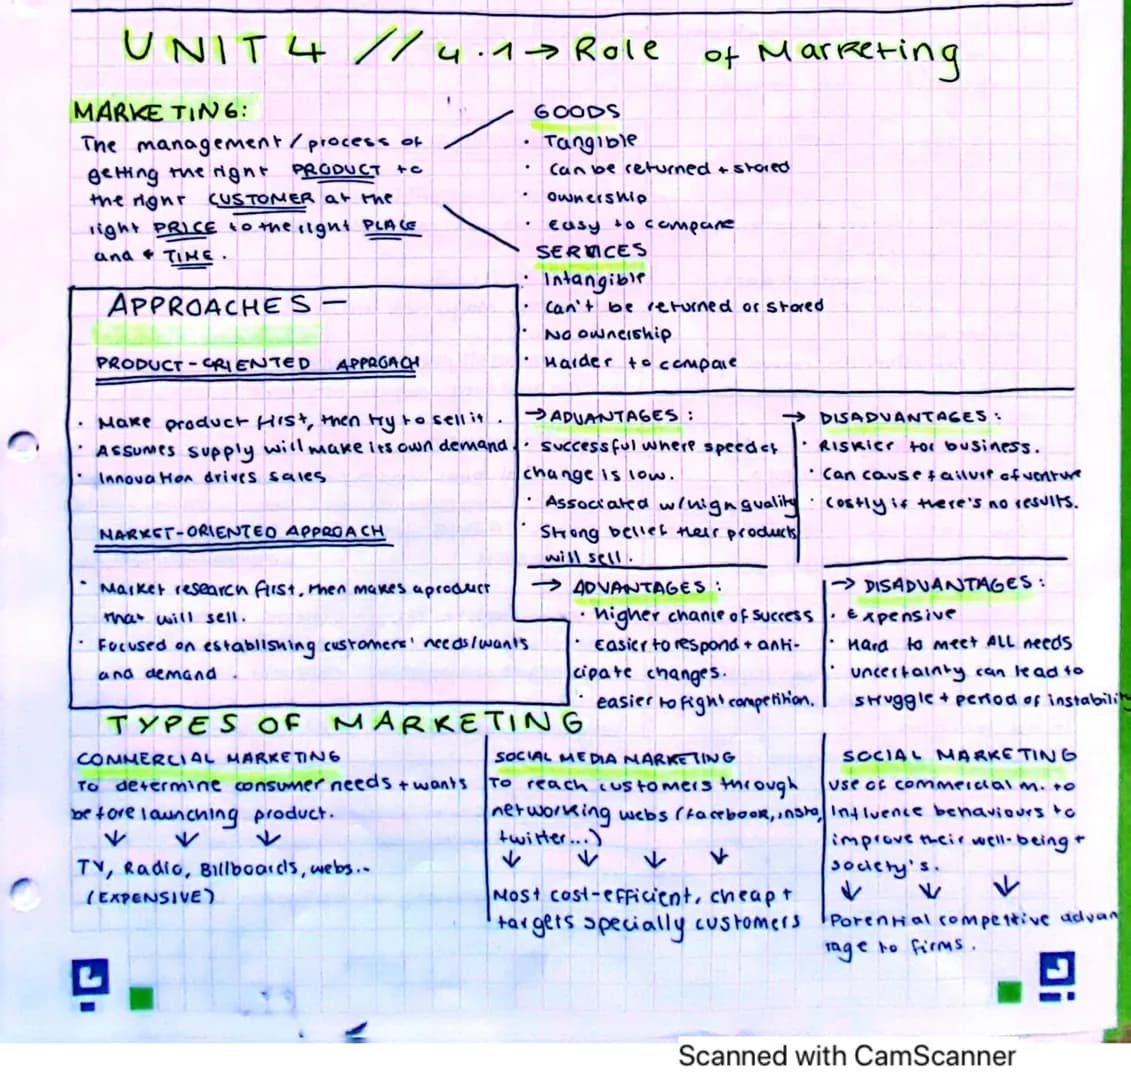 UNIT 4 // 4.1 → Role of Marketing
MARKETING:
The management / process of
getting the right PRODUCT to
the right CUSTOMER at the
right PRICE to the right PLACE
and TIME.
GOODS
· Tangible
· Can be returned + stored
· ownership
· Easy to compare
SERVICES
· Intangible
· Can't be returned or stored
· No ownership
· Harder to compare
APPROACHES –
PRODUCT-ORIENTED APPROACH
· Make product first, then try to sell it.
· Assumes supply will make its own demand.
· Innovation drives sales
→ ADVANTAGES:
· successful where speed of
change is low.
· Associated w/high quality
· Strong belief their products
will sell.
→ DISADVANTAGES:
· Riskier for business.
· Can cause failure of venture
· costly if there's no results.
MARKET-ORIENTED APPROACH
· Market research first, then makes a product
that will sell.
· Focused on establishing customers' needs/wants
and demand.
→ ADVANTAGES:
· higher chance of success
· Easier to respond + anti-
cipate changes.
· easier to fight competition.
→ DISADVANTAGES:
· Expensive
· Hard to meet ALL needs
· uncertainty can lead to
struggle + period of instabilit
TYPES OF MARKETING
COMMERCIAL MARKETING
To determine consumer needs + wants
before launching product.
↓ ↓ ↓
TV, Radio, Billboards, webs...
(EXPENSIVE)
SOCIAL MEDIA MARKETING
To reach customers through
networking webs (facebook, insta,
twitter...)
↓ ↓ ↓ ↓
Most cost-efficient, cheap +
targets specially customers
SOCIAL MARKETING
use of commercial m. to
influence behaviours to
improve their well-being +
society's.
↓ ↓ ↓
Potential competitive advan
tage to firms.
Scanned with CamScanner